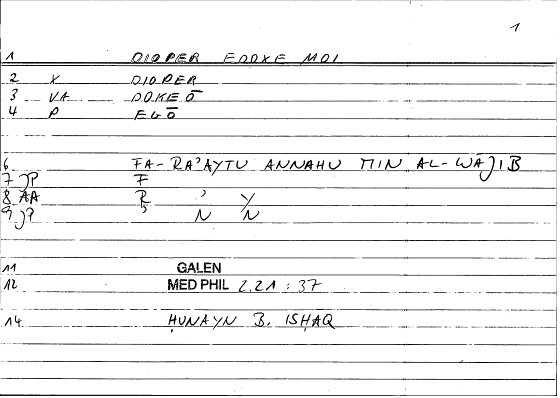 1
1 DIOPER EDOXE MOI
2 X DIOPER
3 VA DOKEŌ
4 P EGŌ
6 FA-RA'AYTU ANNAHU MIN AL-WĀJIB
7 JP F
8 AA R ' Y
9 JP ' N N
11 GALEN
12 MED PHIL 2.21 : 37
14 ḤUNAYN B. ISḤAQ